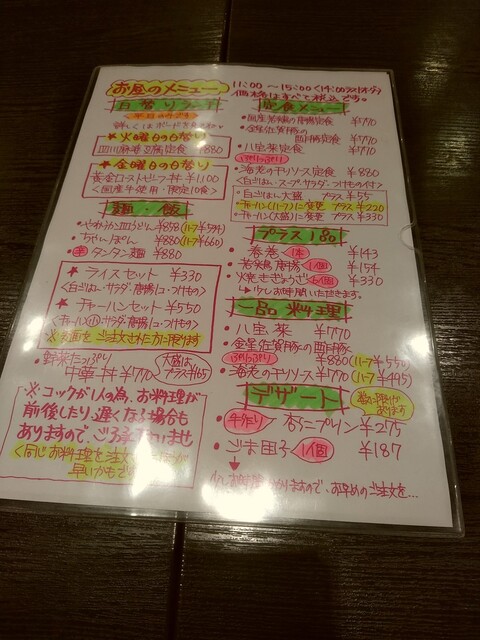 お昼のメニュー
11:00～15:00<14:00ラストオーダー>
価格はすべて税込です。
日替りランチ
<平日のみ>
★火曜日の日替り
四川麻婆豆腐定食 ¥880
★金曜日の日替り
黄金ローストビーフ丼 ¥1100
<国産牛使用・限定10食>
麺・飯
・やわらか皿うどん ¥858(ハーフ¥594)
・ちゃんぽん ¥880(ハーフ¥660)
・タンタン麺 ¥880
★ライスセット ¥330
<白ごはん・サラダ・唐揚1コ・つけもの>
★チャーハンセット ¥550
<チャーハン小・サラダ・唐揚1コ・つけもの>
※麺類をご注文された方に限ります
・野菜たっぷり
中華丼 ¥770
大盛は
プラス¥165
※コックが1人の為、お料理が
前後したり、遅くなる場合も
ありますので、ご了承下さいませ
<同じお料理を
早いかも
定食メニュー
・国産若鶏の唐揚定食 ¥770
・金星佐賀豚の
酢豚定食 ¥770
・八宝菜定食 ¥770
ぷりっぷり
・海老のチリソース定食 ¥770
<白ごはん・スープ・サラダ・つけもの付>
・白ごはん大盛 プラス ¥55
・チャーハン(ハーフ)に変更 プラス ¥220
・チャーハン(大盛)に変更 プラス ¥330
プラス1品
・春巻 1本 ¥143
・若鶏唐揚 1個 ¥154
・焼きぎょうざ 6個 ¥330
少しお時間いただきます。
一品料理
・八宝菜 ¥770
・金星佐賀豚の酢豚
¥880(ハーフ¥550)
ぷりっぷり
・海老のチリソース ¥770(ハーフ¥495)
デザート
数に限りが
あります
・手作り 杏仁プリン ¥275
・ごま団子 1個 ¥187
ありますので、お早めのご注文を…